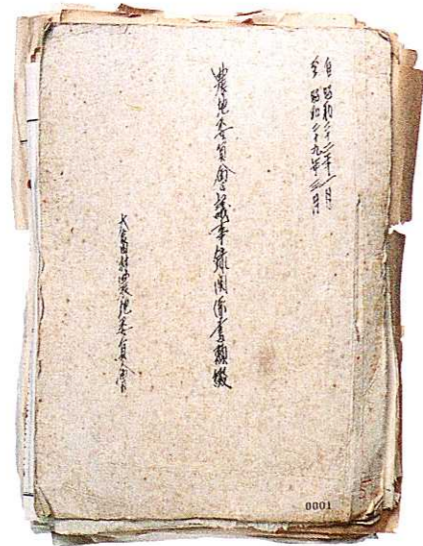 自 昭和二十二年一月
至 昭和二十九年三月
農地委員會議事録関係書類綴
大富村農地委員會
0001